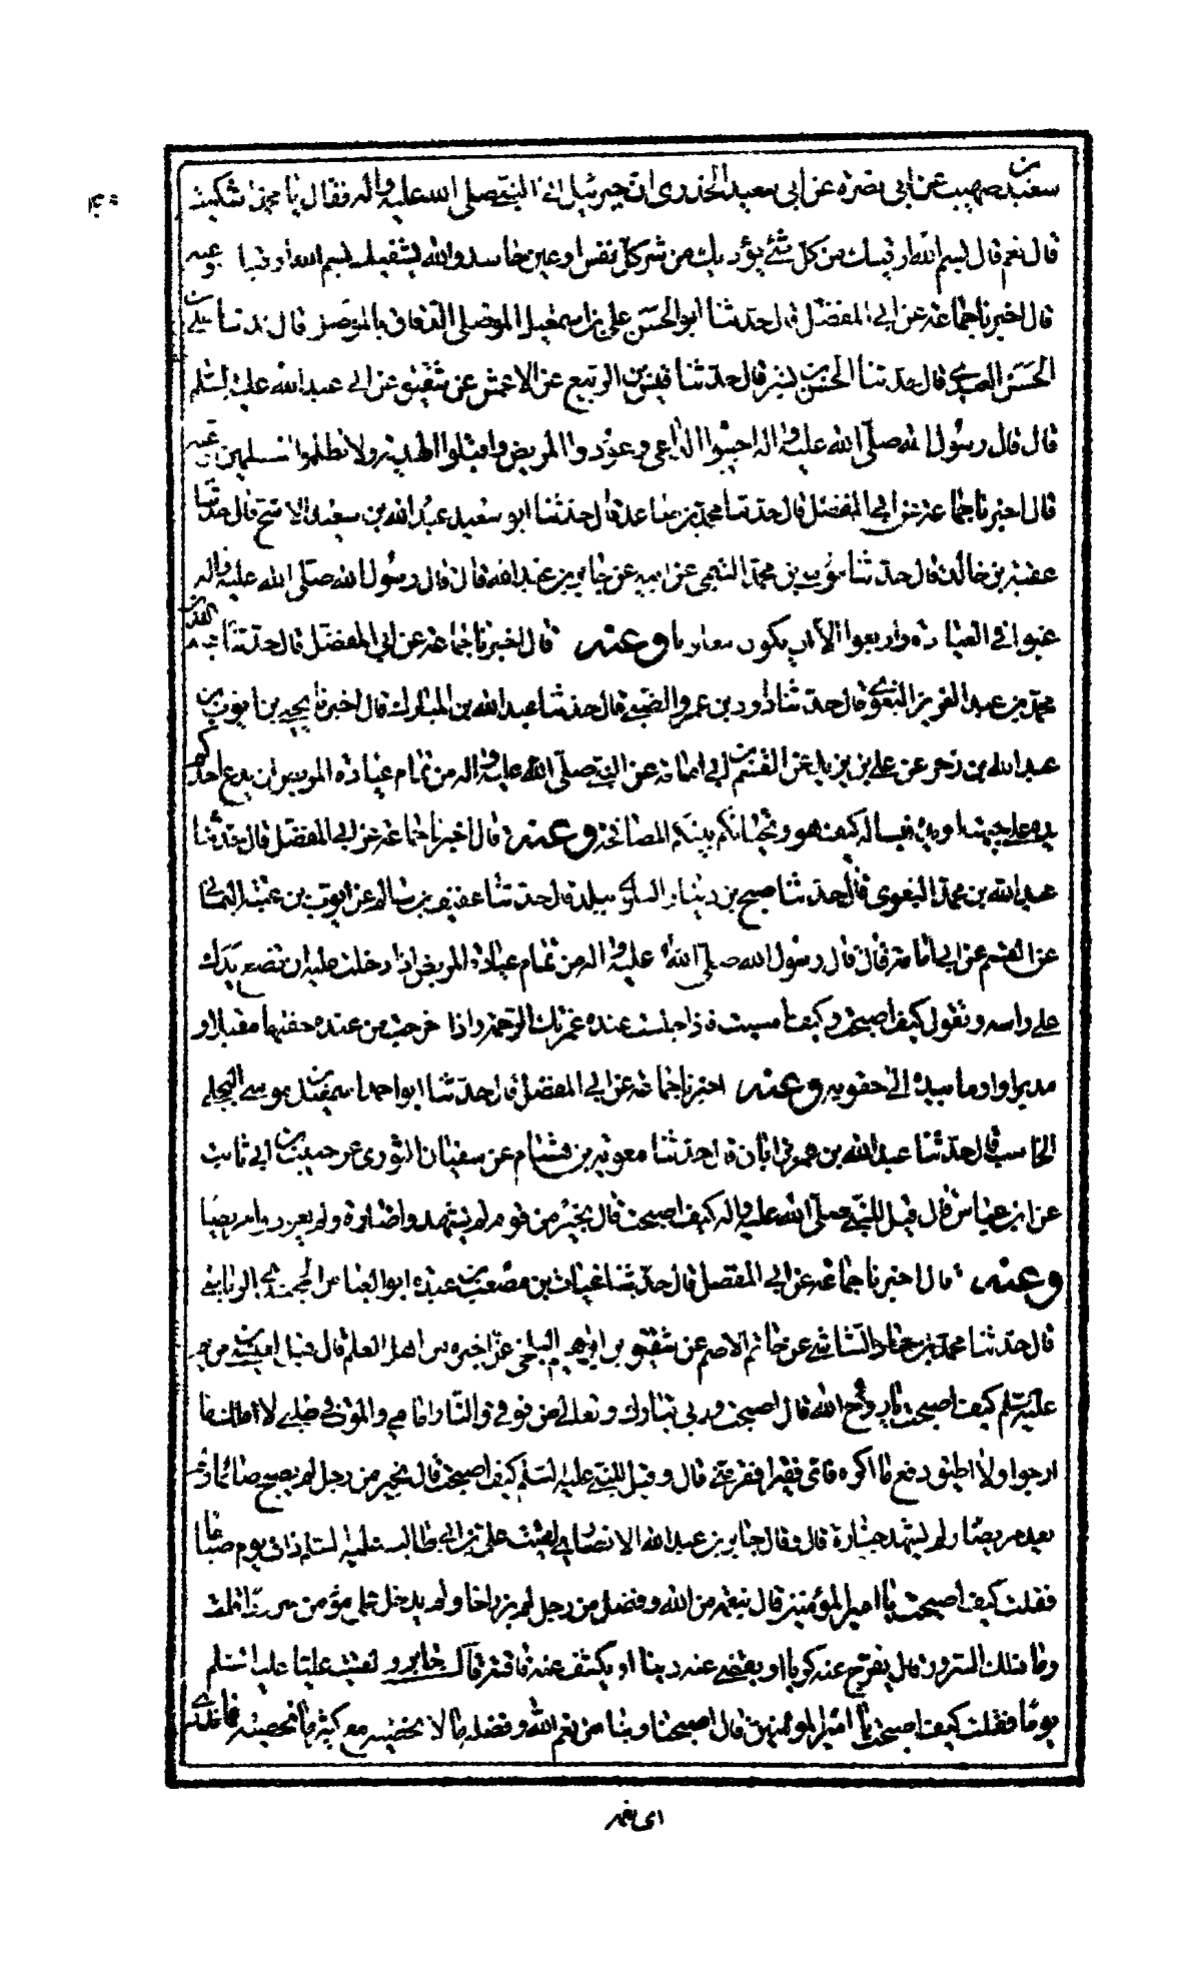 سعيد بن صهيب عن ابي نضره عن ابي سعيد الخدري ان جبرئيل اتى النبي صلى الله عليه واله فقال يا محمد اشتكيت
قال نعم قال بسم الله ارقيك من كل شئ يؤذيك من شر كل نفس او عين حاسد والله يشفيك بسم الله ارقيك وعنه
قال اخبرنا جماعة عن ابي المفضل قال حدثنا ابو الحسن علي بن اسمعيل الموصلي الدقاق بالموصل قال حدثنا علي بن
الحسن العبدي قال حدثنا الحسن بن بشر قال حدثنا قيس بن الربيع عن الاعمش عن شقيق عن ابي عبد الله عليه السلم
قال قال رسول الله صلى الله عليه واله اجيبوا الداعي وعودوا المريض واقبلوا الهدية ولا تظلموا المسلمين وعنه
قال اخبرنا جماعة عن ابي المفضل قال حدثنا محمد بن صاعد قال حدثنا ابو سعيد عبد الله بن سعيد الاشج قال حدثنا
عقبة بن خالد قال حدثنا موسى بن محمد التيمي عن ابيه عن جابر بن عبد الله قال قال رسول الله صلى الله عليه واله
غبوا في العيادة واربعوا الا ان يكون مغلوبا وعنه قال اخبرنا جماعة عن ابي المفضل قال حدثنا عبد الله بن
محمد بن عبد العزيز البغوي قال حدثنا داود بن عمرو الضبي قال حدثنا عبد الله بن المبارك قال اخبرنا يحيى بن ايوب بن
عبد الله بن زحر عن علي بن يزيد عن القسم بن ابي امامة عن النبي صلى الله عليه واله من تمام عيادة المريض ان يدع احدكم
يده على جبهته او يده فيساله كيف هو وتحياتكم بينكم المصافحة وعنه قال اخبرنا جماعة عن ابي المفضل قال حدثنا
عبد الله بن محمد البغوي قال حدثنا صبيح بن دينار ببلد قال حدثنا عفيف بن سالم عن ايوب بن عتبة اليماني
عن القسم عن ابي امامة قال قال رسول الله صلى الله عليه واله من تمام عيادة المريض اذا دخلت عليه ان تضع يدك
على راسه وتقول كيف اصبحت وكيف امسيت فاذا جلست عنده غمرتك الرحمة واذا خرجت من عنده خضتها مقبلا و
مدبرا واومأ بيده الى حقويه وعنه اخبرنا جماعة عن ابي المفضل قال حدثنا ابو احمد اسمعيل بن موسى البجلي
الحاسب قال حدثنا عبد الله بن عمر بن ابان قال حدثنا معوية بن هشام عن سفيان الثوري عن حبيب بن ابي ثابت
عن ابن عباس قال قيل للنبي صلى الله عليه واله كيف اصبحت قال بخير من قوم لم يشهدوا جنازة ولم يعودوا مريضا
وعنه قال اخبرنا جماعة عن ابي المفضل قال حدثنا غياث بن مصعب بن عبده ابو العباس الخجندي الرياشي
قال حدثنا محمد بن حماد الشاشي عن حاتم الاصم عن شقيق بن ابراهيم البلخي عن اخبره من اهل العلم قال قيل لعيسى بن مريم
عليه السلم كيف اصبحت يا روح الله قال اصبحت وربي تبارك وتعالى من فوقي والنار امامي والموت في طلبي لا املك ما
ارجوا ولا اطيق دفع ما اكره فاي فقير افقر مني قال وقيل للنبي عليه السلم كيف اصبحت قال بخير من رجل لم يصبح صائما ولم
يعد مريضا ولم يشهد جنازة قال وقال جابر بن عبد الله الانصاري لقيت علي بن ابي طالب عليه السلم ذات يوم صباحا
فقلت كيف اصبحت يا امير المؤمنين قال بنعمة من الله وفضل من رجل لم يزر اخا ولم يدخل على مؤمن سرورا قلت
وما ذلك السرور قال يفرج عنه كربا او يقضي عنه دينا او يكشف عنه فاقته قال جابر ولقيت عليا عليه السلم
يوما فقلت كيف اصبحت يا امير المؤمنين قال اصبحنا وبنا من نعم الله وفضله ما لا نحصيه مع كثير ما نحصيه فما ندري
اي نعمة